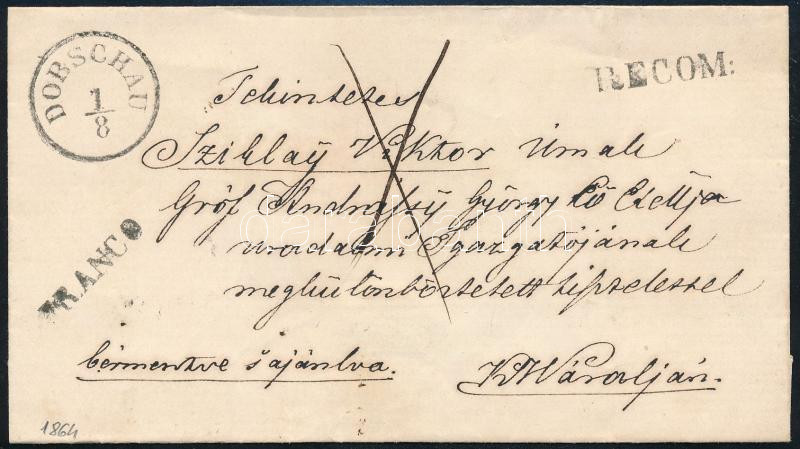 DOBSCHAU
1
8
RECOM:
FRANCO
Tekintetes
Sziklaÿ Viktor Úrnak
Gróf Andráſsÿ György Eő Exclja
uradalmi Igazgatójának
megkülönböztetett tisztelettel
bérmentve s ajánlva.
KHVáralján.
1864